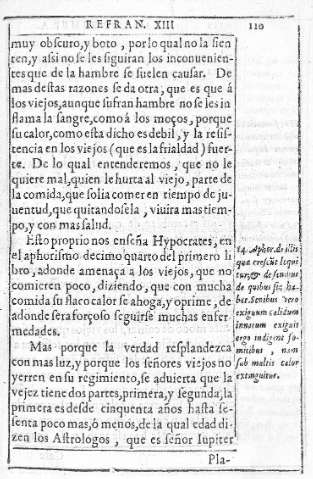 REFRAN. XIII
110
muy obscuro, y boto, por lo qual no la sien
ten, y assi no se les siguiran los inconuenien-
tes que de la hambre se suelen causar. De
mas destas razones se da otra, que es que á
los viejos, aunque sufran hambre no se les in
flama la sangre, como á los moços, porque
su calor, como esta dicho es debil, y la resis-
tencia en los viejos (que es la frialdad) fuer-
te. De lo qual entenderemos, que no le
quiere mal, quien le hurta al viejo, parte de
la comida, que solia comer en tiempo de ju-
uentud, que quitandosela, viuira mas tiem-
po, y con mas salud.
Esto proprio nos enseña Hypocrates, en
el aphorismo decimo quarto del primero li
bro, adonde amenaça a los viejos, que no
comieren poco, diziendo, que con mucha
comida su flaco calor se ahoga, y oprime, de
adonde sera forçoso seguirse muchas enfer
medades.
Mas porque la verdad resplandezca
con mas luz, y porque los señores viejos no
yerren en su regimiento, se aduierta que la
vejez tiene dos partes, primera, y segunda, la
primera es desde cinquenta años hasta se-
senta poco mas, ó menos, de la qual edad di-
zen los Astrologos, que es señor Iupiter
Pla-
14. Aphor. de illis
qua crescūt loqui
tur, & de senibus
de quibus sic ha-
bet. Senibus vero
exiguum calidum
innatum exiguis
ergo indigent fo-
mitibus, nam
sub multis calor
extinguitur.